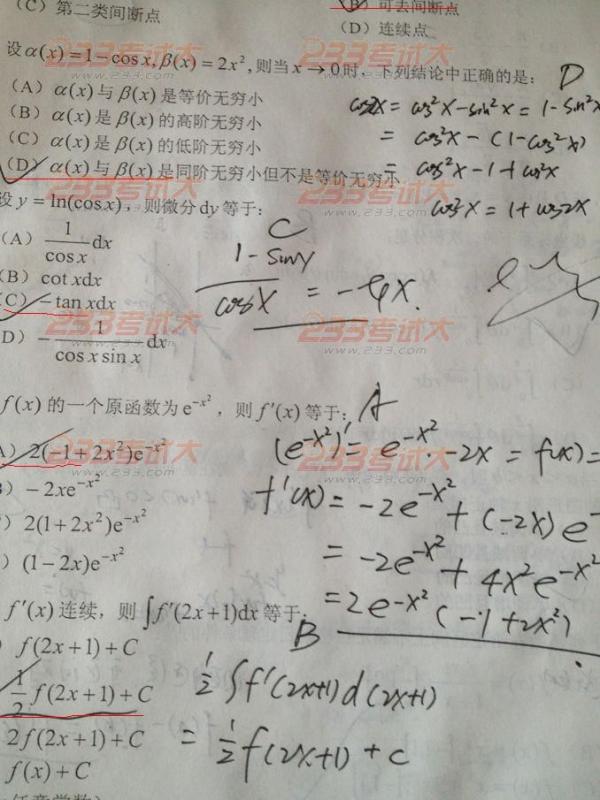 （C）第二类间断点
（B）可去间断点
（D）连续点
设 α(x)=1−cos x, β(x)=2x²，则当 x→0 时，下列结论中正确的是： D
（A）α(x) 与 β(x) 是等价无穷小
（B）α(x) 是 β(x) 的高阶无穷小
（C）α(x) 是 β(x) 的低阶无穷小
（D）α(x) 与 β(x) 是同阶无穷小但不是等价无穷小
cos2x = cos²x − sin²x = 1 − sin²x
= cos²x − (1−cos²x)
= cos²x − 1 + cos²x
cos²x = 1 + cos2x
设 y = ln(cos x)，则微分 dy 等于： C
（A）1/cos x dx
（B）cot xdx
（C）−tan xdx
（D）− 1/cos x sin x dx
f(x) 的一个原函数为 e^(−x²)，则 f′(x) 等于： A
A）2(−1+2x²)e^(−x²)
B）−2xe^(−x²)
）2(1+2x²)e^(−x²)
）(1−2x)e^(−x²)
(e^(-x²))′ = e^(-x²)·−2x = f(x) =
f′(x) = −2e^(-x²) + (−2x)e
= −2e^(-x²) + 4x²e^(-x²)
= 2e^(-x²)(−1+2x²)
f′(x) 连续，则 ∫f′(2x+1)dx 等于： B
）f(2x+1)+C
1/2 f(2x+1)+C
2f(2x+1)+C
f(x)+C
1/2 ∫f′(2x+1)d(2x+1)
= 1/2 f(2x+1) + c
233考试大
www.233.com